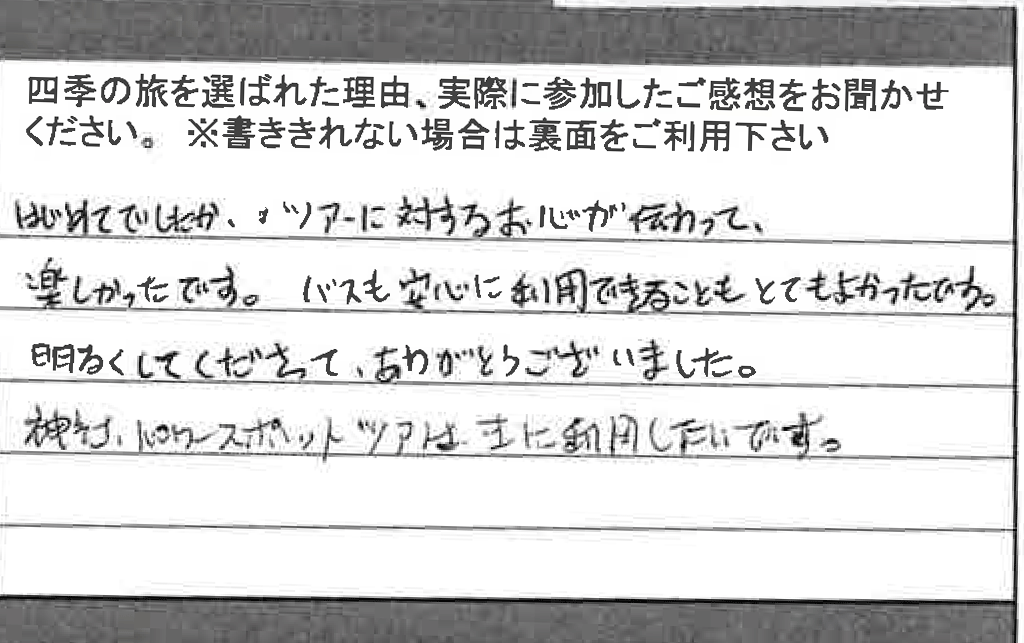 四季の旅を選ばれた理由、実際に参加したご感想をお聞かせ
ください。 ※書ききれない場合は裏面をご利用下さい
はじめてでしたが、ツアーに対するお心が伝わって、
楽しかったです。 バスも安心に利用できることもとてもよかったです。
明るくしてくださって、ありがとうございました。
神社、パワースポットツアーは、また利用したいです。